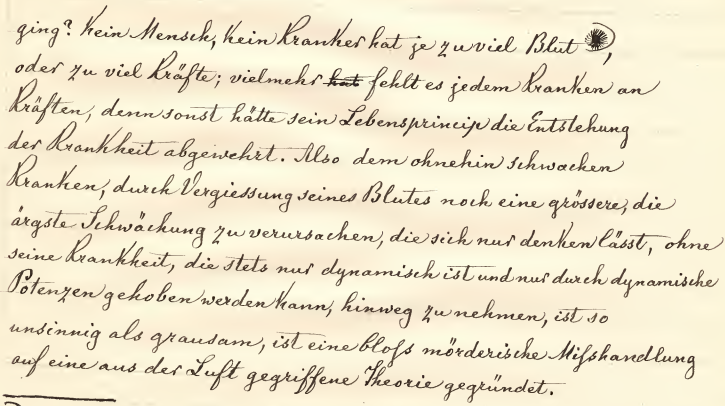 ging? Kein Mensch, kein Kranker hat je zu viel Blut,
oder zu viel Kräfte; vielmehr hat fehlt es jedem Kranken an
Kräften, denn sonst hätte sein Lebensprincip die Entstehung
der Krankheit abgewehrt. Also dem ohnehin schwachen
Kranken, durch Vergiessung seines Blutes noch eine grössere, die
ärgste Schwächung zu verursachen, die sich nur denken lässt, ohne
seine Krankheit, die stets nur dynamisch ist und nur durch dynamische
Potenzen gehoben werden kann, hinweg zu nehmen, ist so
unsinnig als grausam, ist eine bloſs mörderische Miſshandlung
auf eine aus der Luft gegriffene Theorie gegründet.